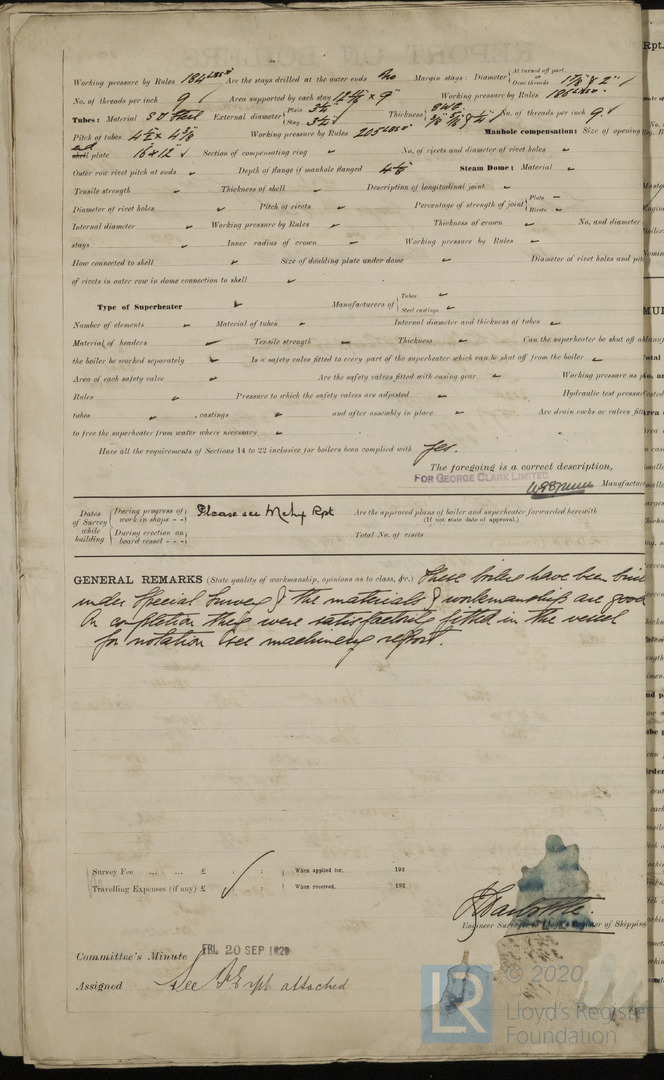 Working pressure by Rules 184 Lbs Are the stays drilled at the outer ends No Margin stays: Diameter { At turned off part, or Over threads 1 7/8" & 2"
No. of threads per inch 9 Area supported by each stay × 9" Working pressure by Rules 185 Lbs
Tubes: Material S D Steel External diameter { Plain 3 1/2" Stay 3 1/2" Thickness { 8 WG No. of threads per inch 9
Pitch of tubes 4 1/2 × 4 3/8 Working pressure by Rules 205 Lbs Manhole compensation: Size of opening
end shell plate 16 × 12" Section of compensating ring No. of rivets and diameter of rivet holes
Outer row rivet pitch at ends Depth of flange if manhole flanged Steam Dome: Material
Tensile strength Thickness of shell Description of longitudinal joint
Diameter of rivet holes Pitch of rivets Percentage of strength of joint { Plate Rivets
Internal diameter Working pressure by Rules Thickness of crown No. and diameter
stays Inner radius of crown Working pressure by Rules
How connected to shell Size of doubling plate under dome Diameter of rivet holes and
of rivets in outer row in dome connection to shell
Type of Superheater Manufacturers of { Tubes Steel castings
Number of elements Material of tubes Internal diameter and thickness of tubes
Material of headers Tensile strength Thickness Can the superheater be shut off
the boiler be worked separately Is a safety valve fitted to every part of the superheater which can be shut off from the boiler
Area of each safety valve Are the safety valves fitted with easing gear Working pressure as
Rules Pressure to which the safety valves are adjusted Hydraulic test pressure
tubes , castings and after assembly in place Are drain cocks or valves
to free the superheater from water where necessary
Have all the requirements of Sections 14 to 22 inclusive for boilers been complied with Yes.
The foregoing is a correct description,
FOR GEORGE CLARK LIMITED
Manufacturer
Dates of Survey while building { During progress of work in shops - - } Please see Mchy Rpt Are the approved plans of boiler and superheater forwarded herewith (If not state date of approval.)
{ During erection on board vessel - - - } Total No. of visits
GENERAL REMARKS (State quality of workmanship, opinions as to class, &c.) These boilers have been
under Special Survey & the materials & workmanship are good
On completion they were satisfactorily fitted in the vessel
for notation see machinery report.
Survey Fee ... ... £ : : When applied for, 192
Travelling Expenses (if any) £ : : When received, 192
Engineer Surveyor to Lloyd's Register of Shipping
Committee's Minute FRI. 20 SEP 1929
Assigned See attached
LR © 2020
Lloyd's Register
Foundation